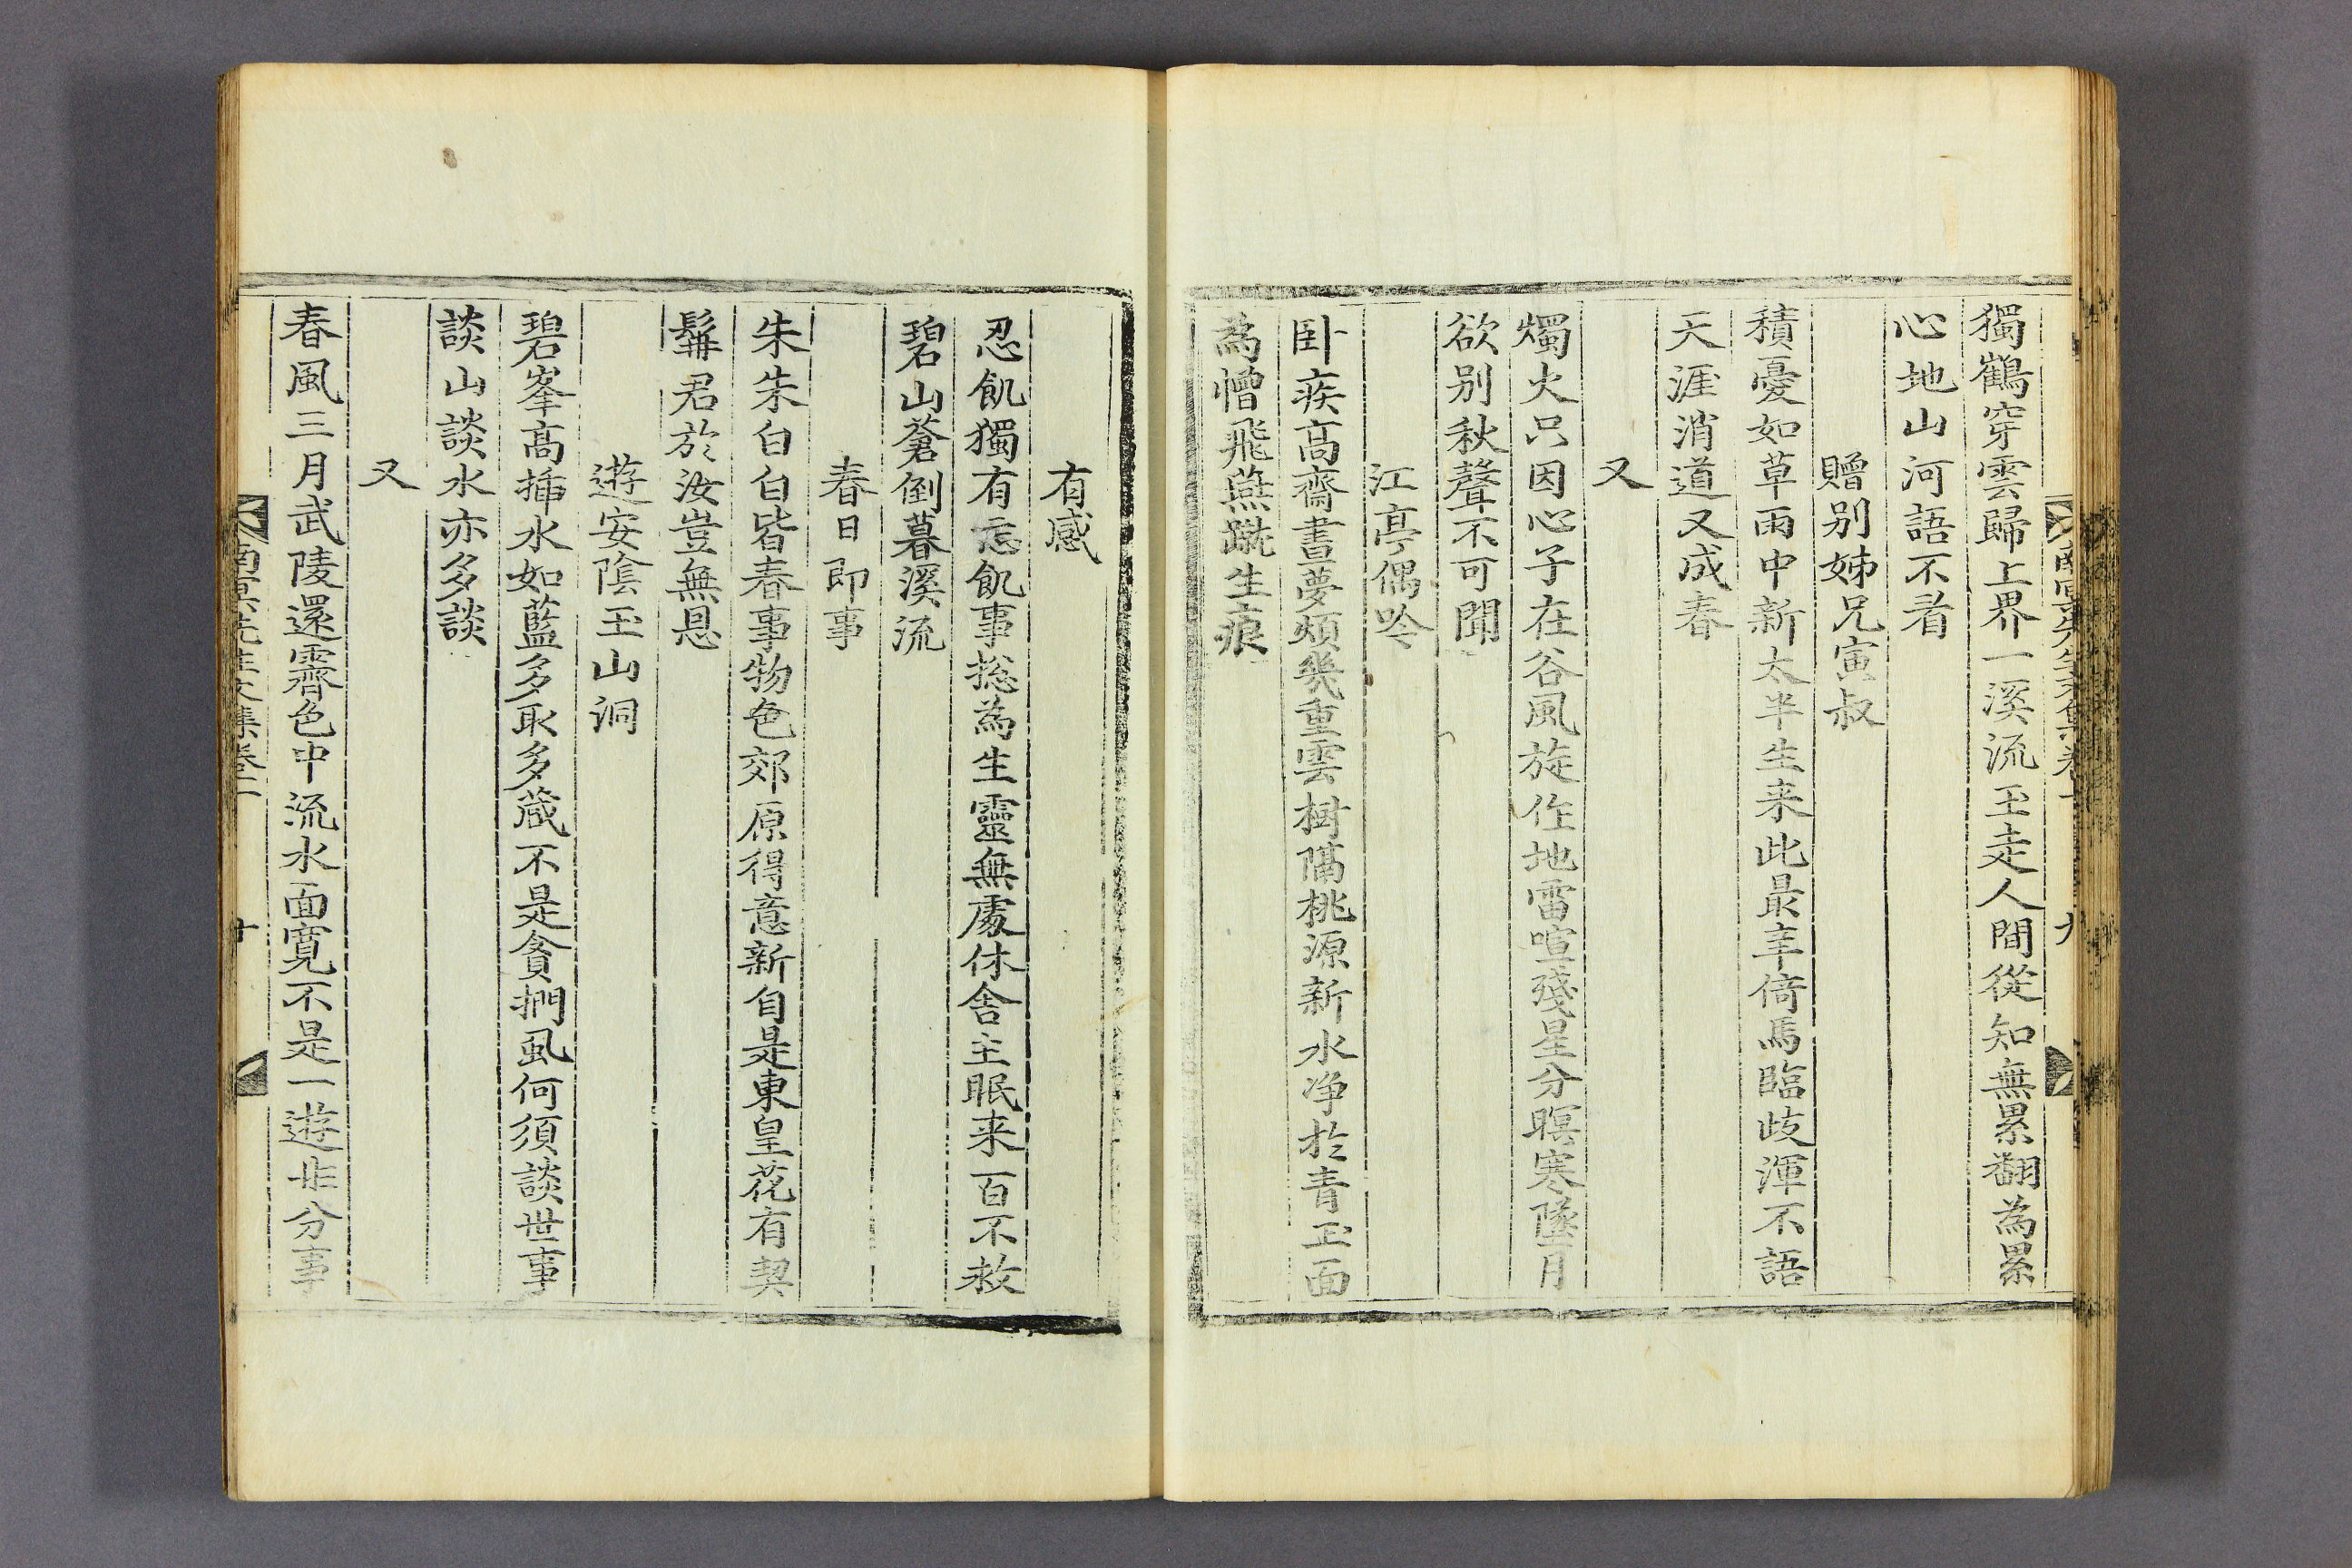 獨鶴穿雲歸上界一溪流玉走人間從知無累翻為累
心地山河語不着
贈别姊兄寅叔
積憂如草雨中新太半生来此最辛倚馬臨歧渾不語
天涯消道又成春
又
燭火只因心子在谷風旋作地雷喧殘星分暝寒墜月
欲别秋聲不可聞
江亭偶吟
卧疾高齋晝夢煩幾重雲樹隔桃源新水净於青玉面
為憎飛燕蹴生痕
有感
忍飢獨有忘飢事捴為生靈無處休舍主眠来百不救
碧山蒼倒暮溪流
春日即事
朱朱白白皆春事物色郊原得意新自是東皇花有契
鬅君於汝豈無恩
遊安陰玉山洞
碧峯高揷水如藍多取多蔵不是貪捫虱何須談世事
談山談水亦多談
又
春風三月武陵還霽色中流水面寛不是一遊非分事
南冥先生文集卷一 十